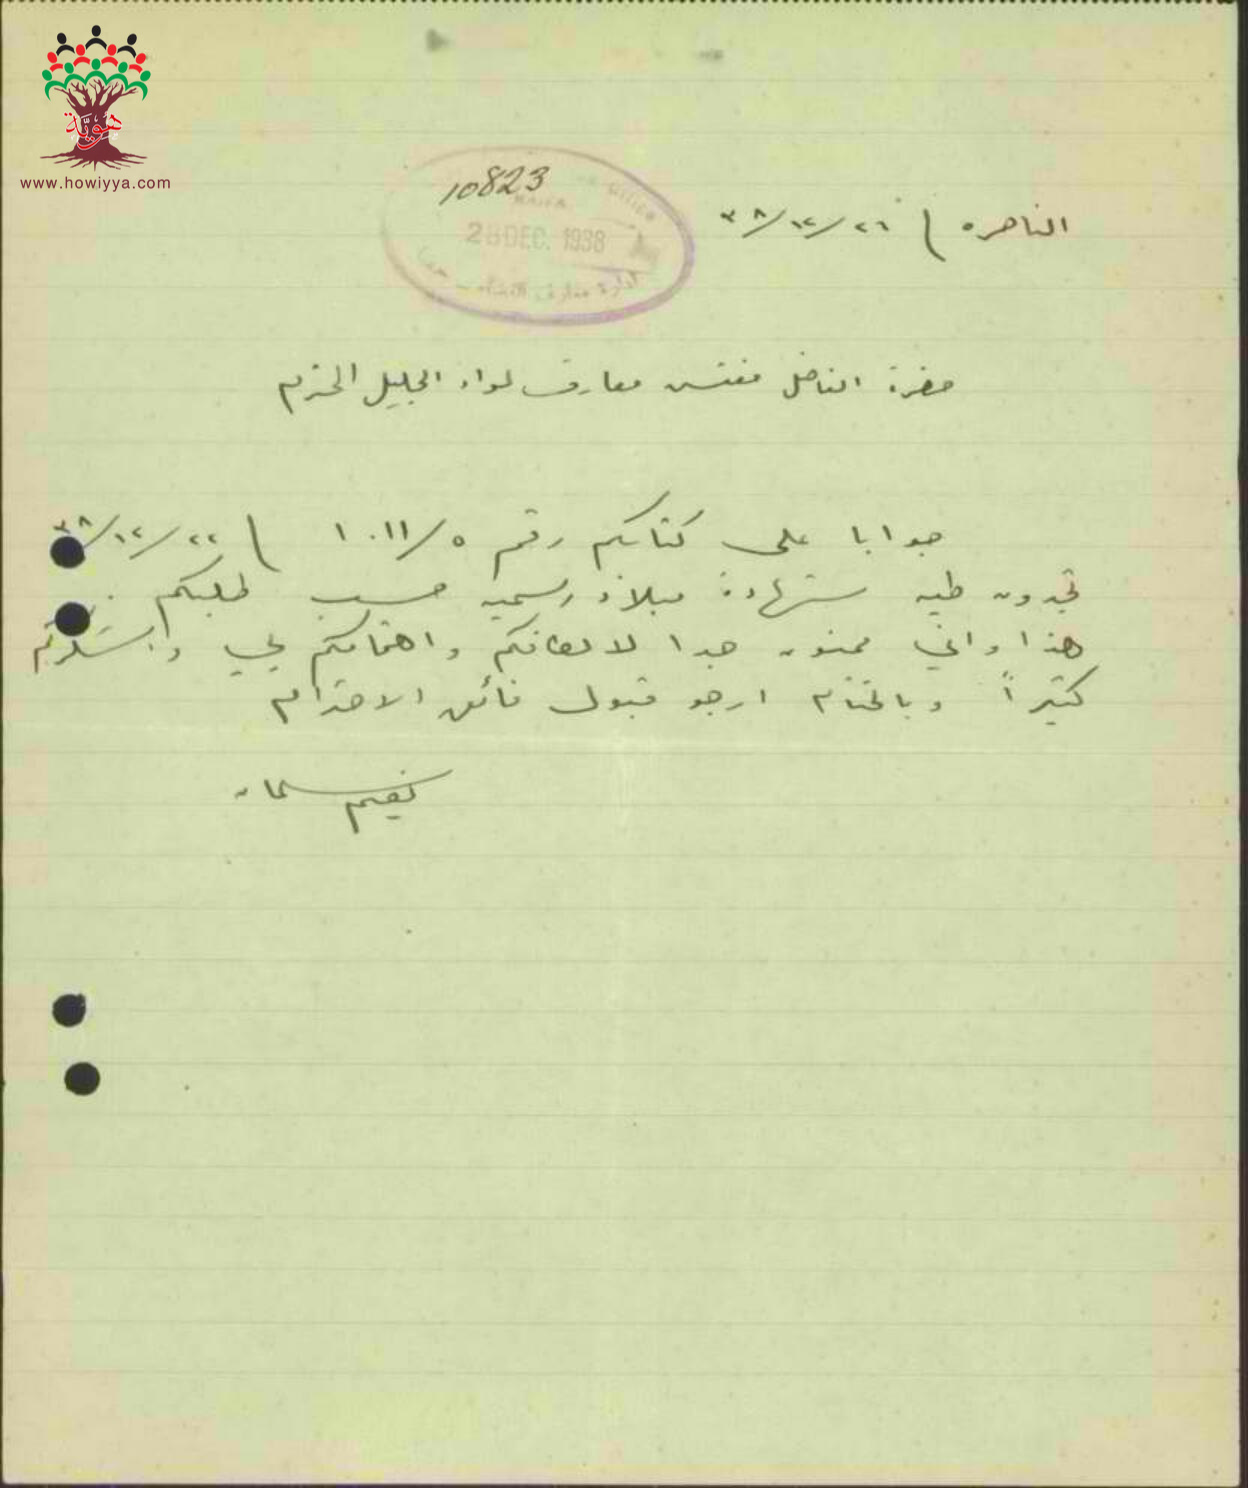 هوية
www.howiyya.com
10823
HAIFA
28 DEC. 1938
ادارة معارف اللواء - حيفا
الناصره / ٢٦/١٢/٣٨
حضرة الفاضل مفتش معارف لواء الجليل المحترم
جوابا على كتابكم رقم ١٠١١/٥ / ٢٢/١٢/٣٨
تجدون طيه شهادة ميلاد رسميه حسب طلبكم .
هذا واني ممنون جدا لالطافكم واهتمامكم بي واشكركم
كثيراً وبالختام ارجو قبول فائق الاحترام
نعيم سمعان